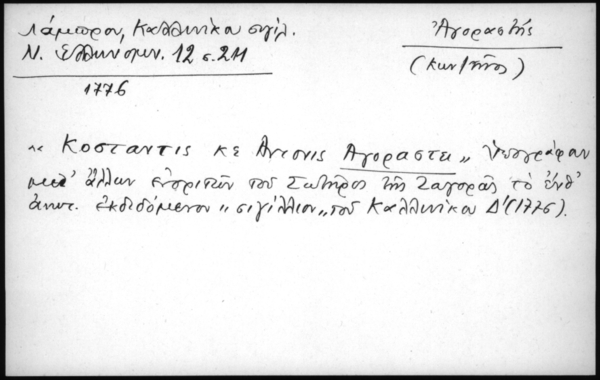 Λάμπρου, Καλλινίκου σιγίλ.
Ν. Ἑλληνομν. 12 σ. 211
1776
Ἀγοραστῆς
(Κων/τῖνος)
"Κοσταντις κε Αντονις Αγοραστε" ὑπογράφουν
μετ' ἄλλων τοῦ Σωτῆρος τῆς Ζαγορᾶς τὸ ἐνθ'
ἀνωτ. ἐκδιδόμενον "σιγίλλιον" τοῦ Καλλινίκου Δ' (1776).